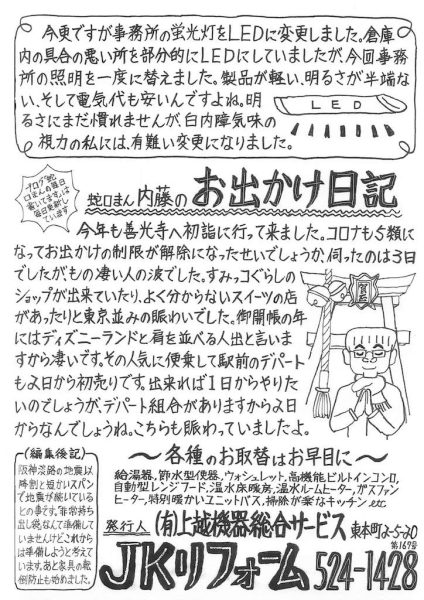 今更ですが事務所の蛍光灯をLEDに変更しました。倉庫
内の具合の悪い所を部分的にLEDにしていましたが、今回事務
所の照明を一度に替えました。製品が軽い、明るさが半端な
い、そして電気代も安いんですよね。明
るさにまだ慣れませんが、白内障気味の
視力の私には、有難い変更になりました。
LED
ブログ「蛇
口まんの毎日
書いてます。」は
毎日更新し
ています
蛇口まん内藤のお出かけ日記
今年も善光寺へ初詣に行って来ました。コロナも5類に
なってお出かけの制限が解除になったせいでしょうか、伺ったのは3日
でしたがもの凄い人の波でした。すみっコぐらしの
ショップが出来ていたり、よく分からないスイーツの店
があったりと東京並みの賑わいでした。御開帳の年
にはディズニーランドと肩を並べる人出と言いま
すから凄いです。その人気に便乗して駅前のデパート
も2日から初売りです。出来れば1日からやりた
いのでしょうが、デパート組合がありますから2日
からなんでしょうね。こちらも賑わっていましたよ。
(編集後記)
阪神淡路の地震以
降割と短かいスパン
で地震が続いている
との事です。非常持ち
出し袋なんて準備して
いませんけどこれから
は準備しようと考えて
います。あと家具の転
倒防止も始めました。
〜各種のお取替はお早目に〜
給湯器、節水型便器、ウォシュレット、高機能ビルトインコンロ、
自動型レンジフード、温水床暖房、温水ルームヒーター、ガスファン
ヒーター、特別暖かいユニットバス、掃除が楽なキッチン etc
発行人 (有)上越機器総合サービス 東本町2-5-20
第169号
JKリフォーム 524-1428